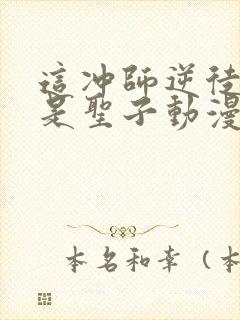 這冲師逆徒
是聖子動漫
本名和幸（本